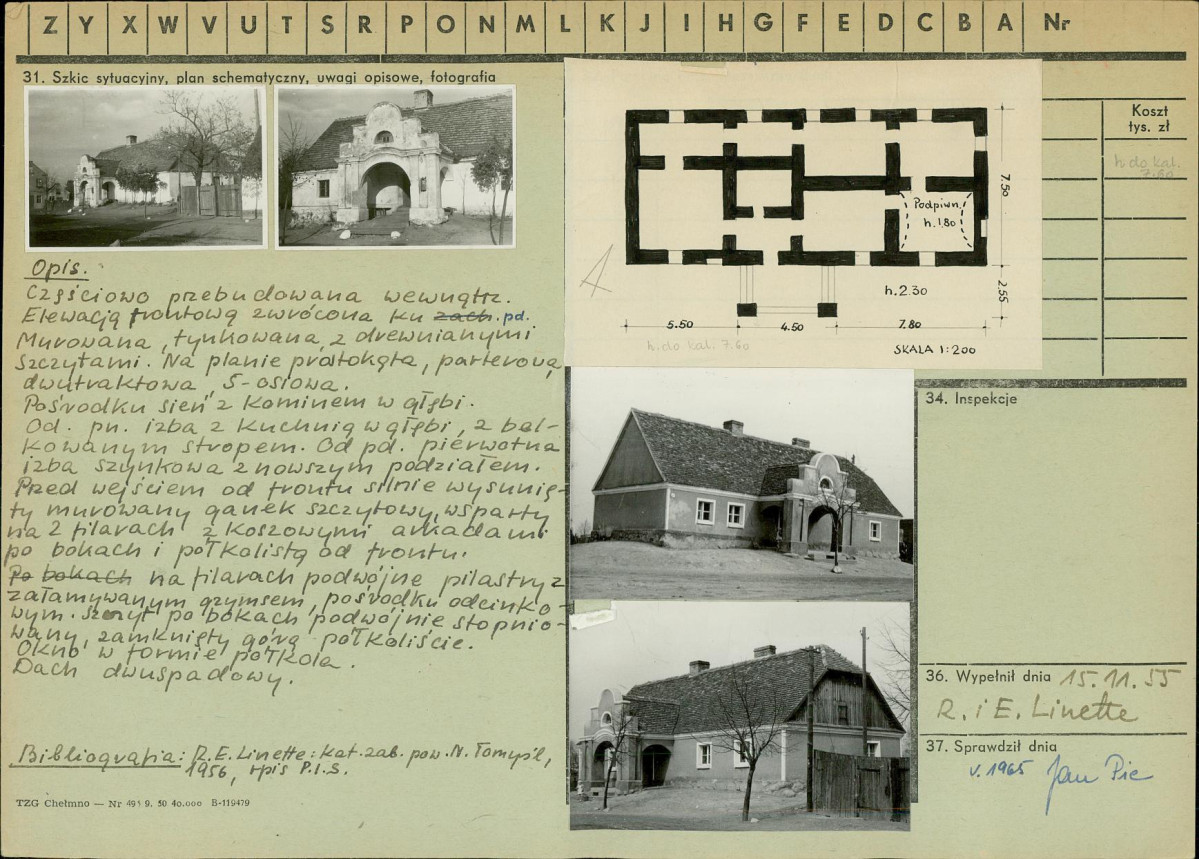 Z Z Y X W V U T S R P O N M L K J I H G F E D C B A Nr
31. Szkic sytuacyjny, plan schematyczny, uwagi opisowe, fotografia
Opis.
Częściowo przebudowana wewnątrz.
Elewacją frontową zwrócona ku zach. pd.
Murowana, tynkowana, z drewnianymi
szczytami. Na planie prostokąta, parterowa,
dwutraktowa, 5-osiowa.
Pośrodku sień z kominem w głębi.
Od. pn. izba z kuchnią w głębi, z bel-
kowanym stropem. Od pd. pierwotna
izba szynkowa z nowszym podziałem.
Przed wejściem od frontu silnie wysunię-
ty murowany ganek szczytowy, wsparty
na 2 filarach z koszowymi arkadami
po bokach i półkolistą od frontu.
Po bokach na filarach podwójne pilastry z
załamywanym gzymsem, pośrodku odcinko-
wym. Szczyt po bokach podwójnie stopnio-
wany, zamknięty górą półkoliście.
Okno w formie półkola.
Dach dwuspadowy.
Bibliografia: R.E. Linette: Kat. zab. pow. N. Tomyśl,
1956, rpis P.I.S.
TZG Chełmno — Nr 491 9. 50 40.000 B-119479
Podpiwn.
h. 1.80
7.50
2.55
h. 2.30
5.50
4.50
7.80
h. do kal. 7.60
SKALA 1:200
Koszt
tys. zł
h. do kal.
7.60
34. Inspekcje
36. Wypełnił dnia 15.11.55
R. i E. Linette
37. Sprawdził dnia
V. 1965 Jan Pic